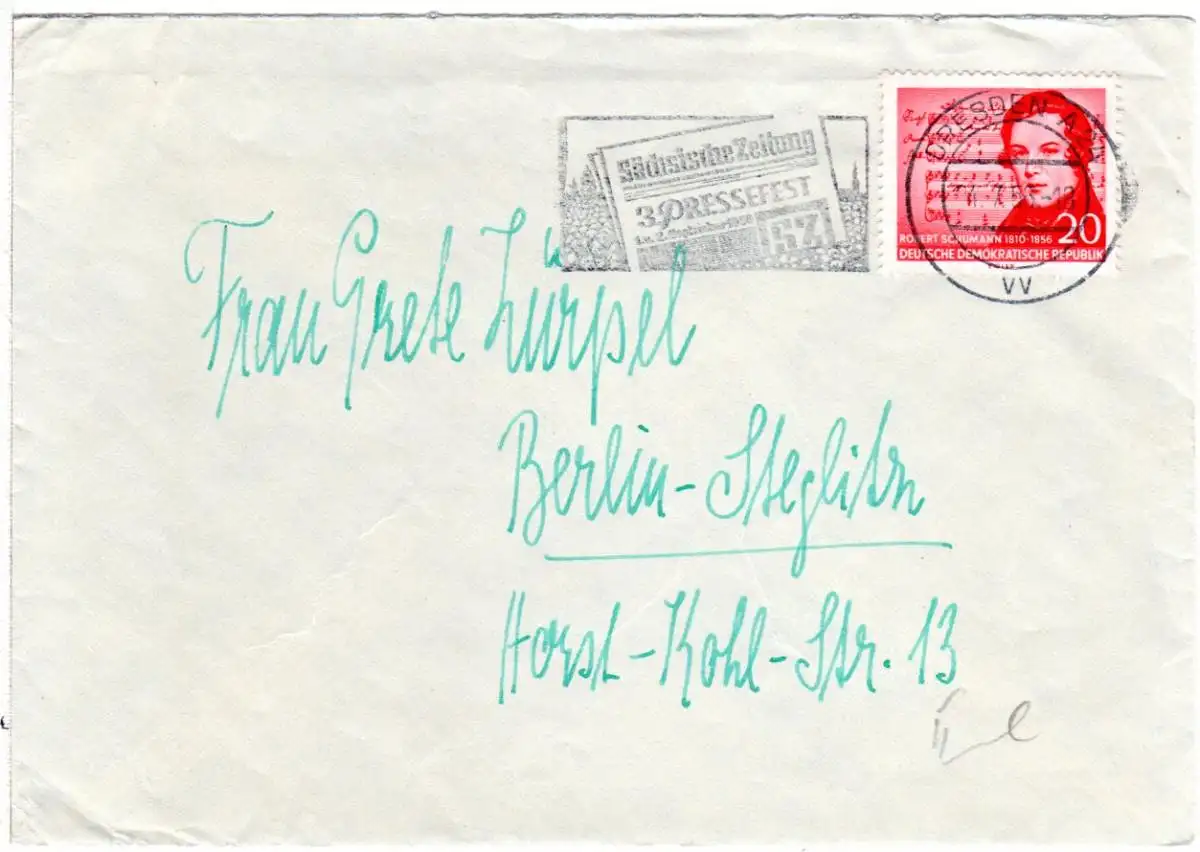 Sächsische Zeitung
3. PRESSEFEST
SZ
DRESDEN A
VV
20
ROBERT SCHUMANN 1810-1856
DEUTSCHE DEMOKRATISCHE REPUBLIK
Frau Grete Zürpel
Berlin-Steglitz
Horst-Kohl-Str. 13